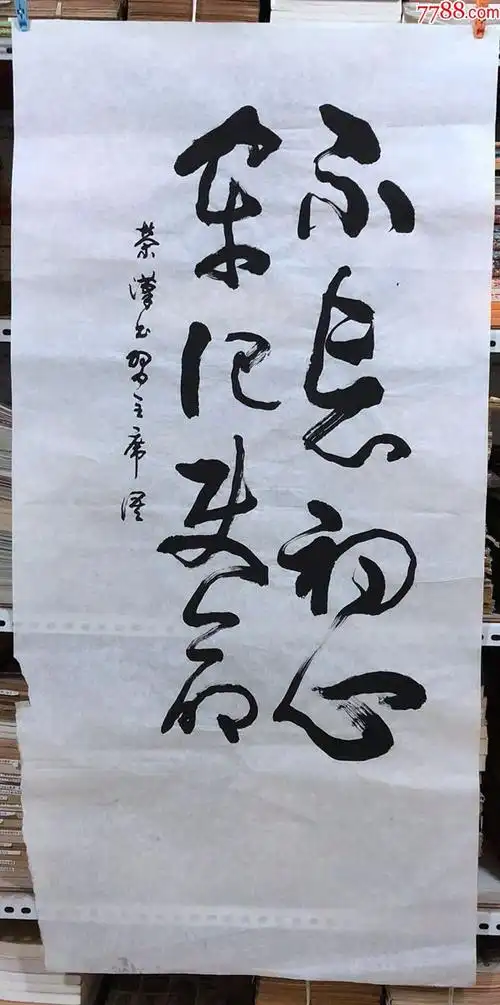 不忘初心
牢记使命
荣汉书习主席语
7788.com